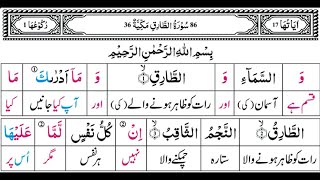 اٰیَاتُهَا 17 86 سُوْرَةُ الطَّارِقِ مَكِّیَّةٌ 36 رُكُوْعُهَا 1
بِسْمِ اللهِ الرَّحْمٰنِ الرَّحِیْمِ
وَ السَّمَآءِ وَ الطَّارِقِ ۙ ① وَ مَاۤ اَدْرٰىكَ مَا
قسم ہے آسمان (کی) اور رات کو ظاہر ہونے والے (کی) اور آپ کیا جانیں کیا
الطَّارِقُ ۙ ② النَّجْمُ الثَّاقِبُ ۙ ③ اِنْ كُلُّ نَفْسٍ لَّمَّا عَلَیْهَا
رات کو ظاہر ہونے والا ستارہ چمکنے والا نہیں ہر نفس مگر اُس پر